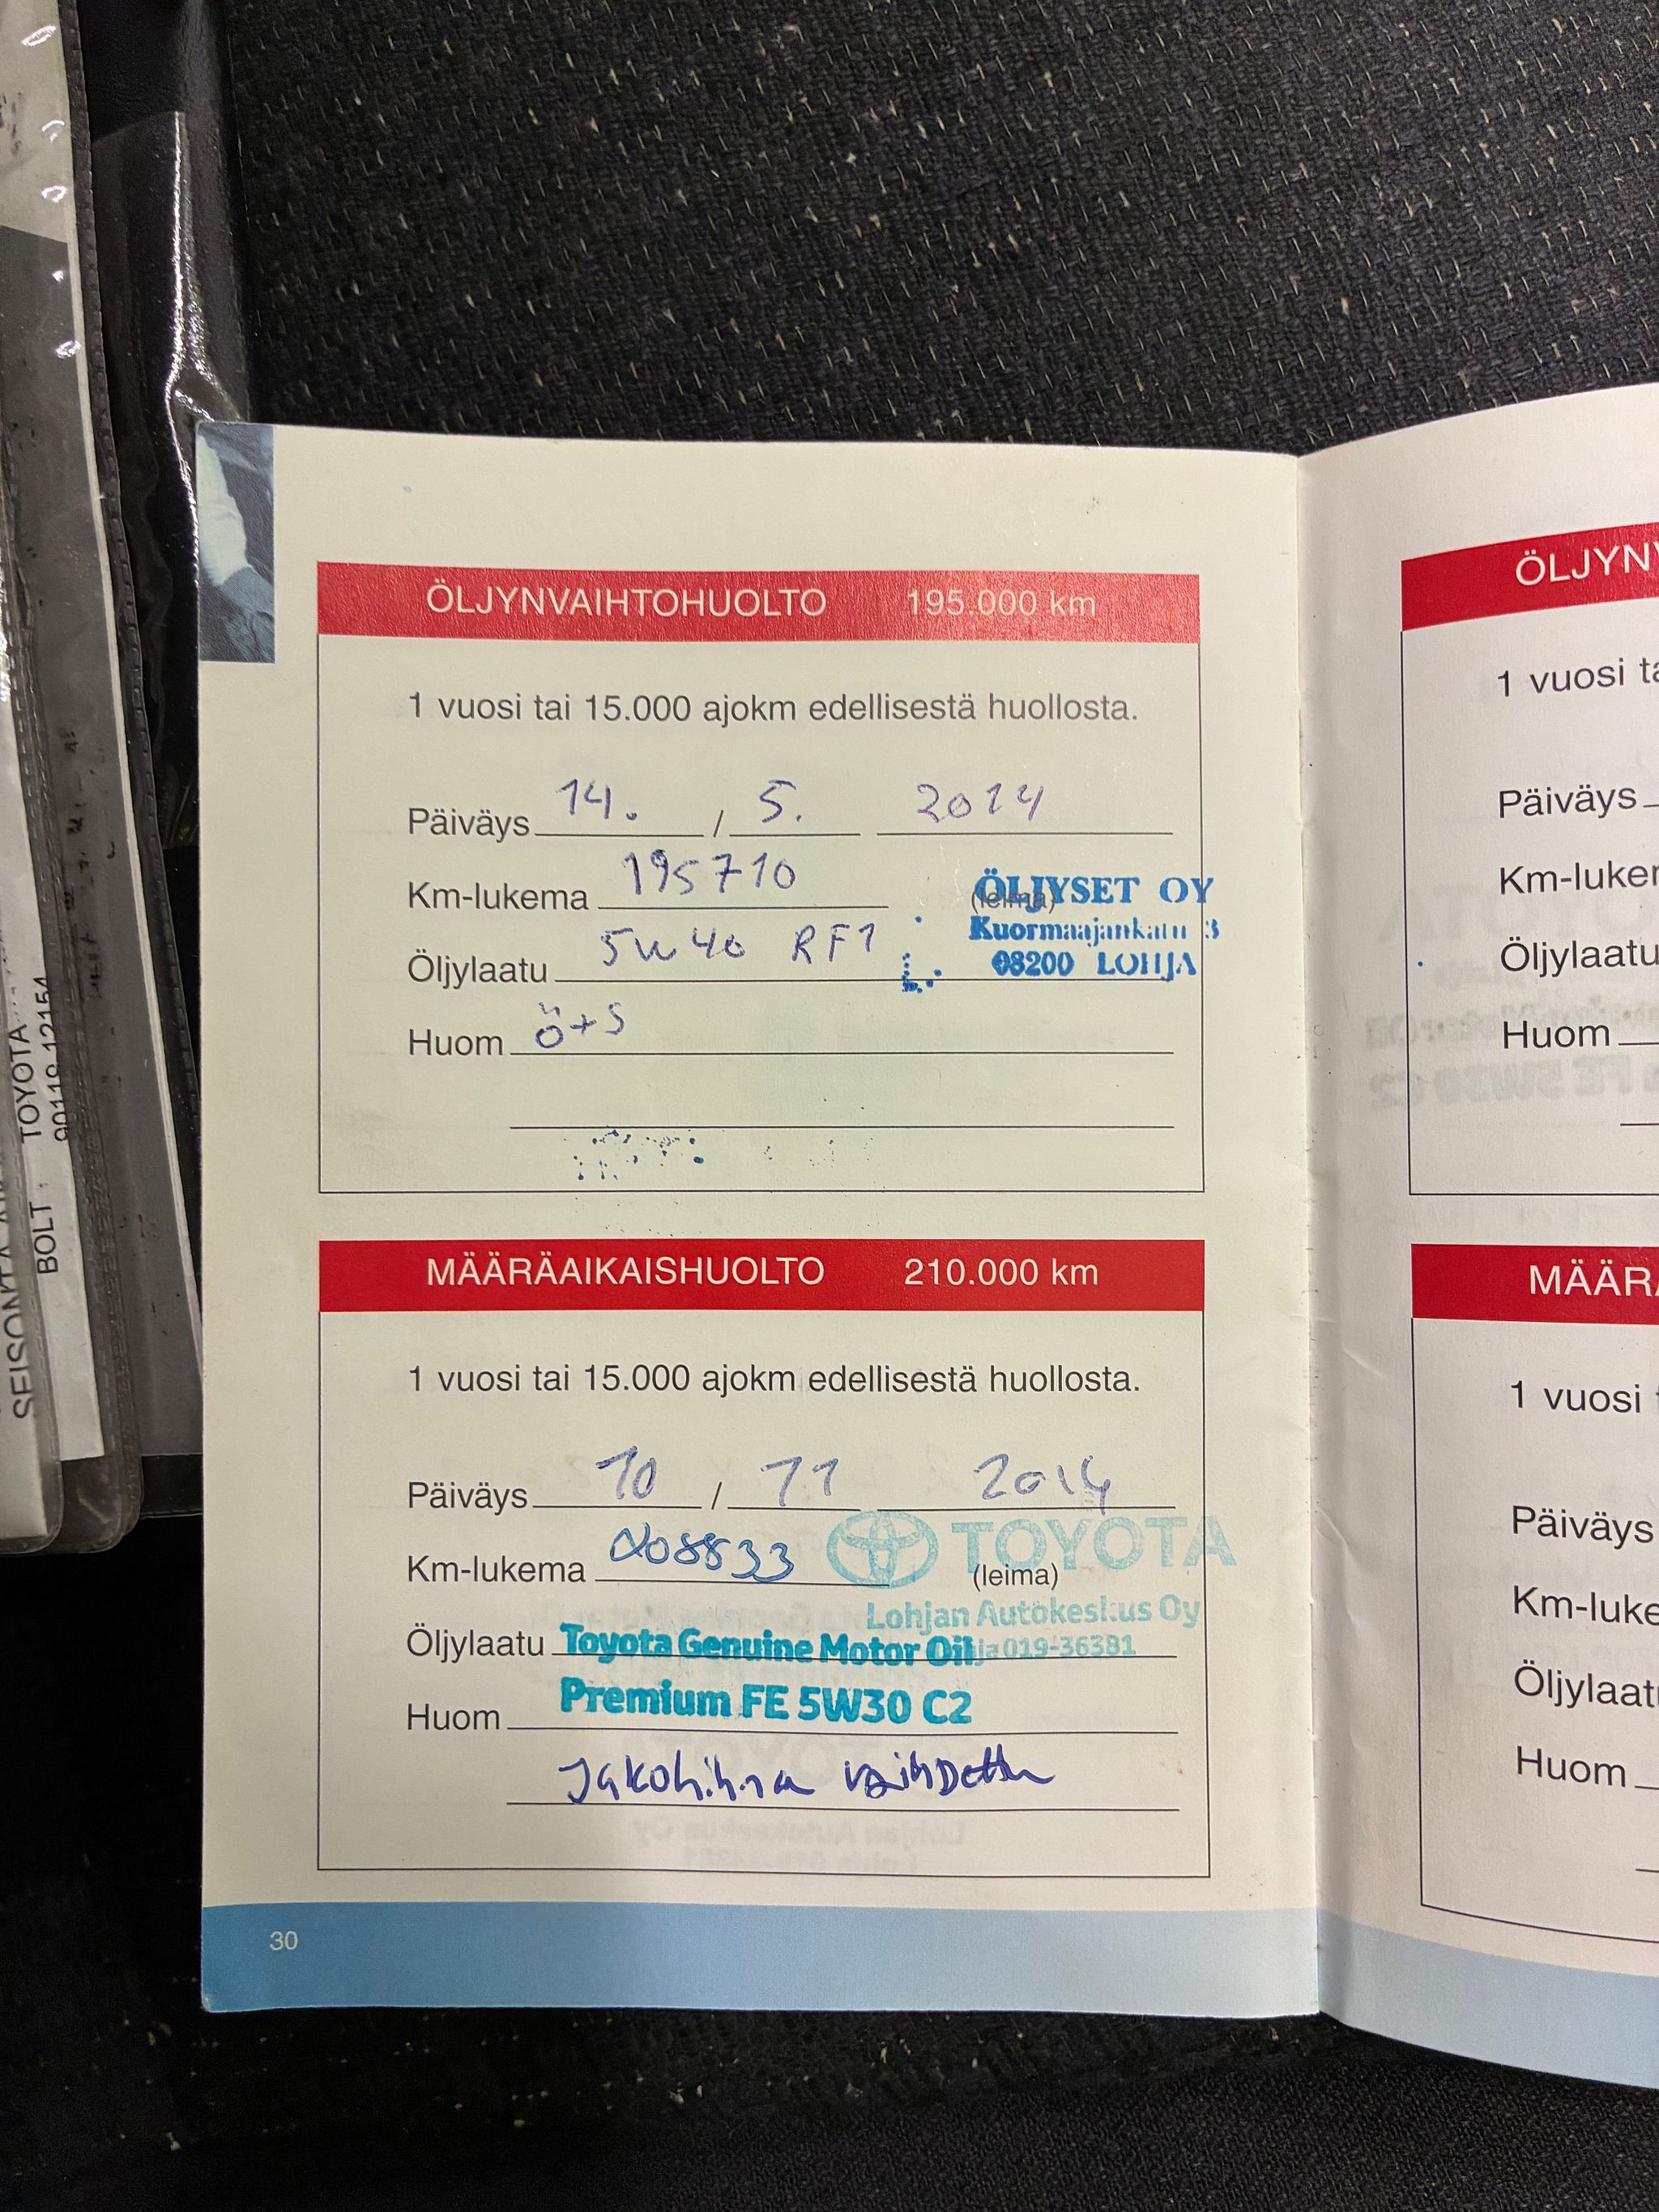 SEISONTA
BOLT
TOYOTA
90119-12154
ÖLJYNVAIHTOHUOLTO 195.000 km
1 vuosi tai 15.000 ajokm edellisestä huollosta.
Päiväys 14. / 5. 2014
Km-lukema 195710
(leima)
ÖLJYSET OY
Kuormaajankatu 3
08200 LOHJA
Öljylaatu 5w40 RF1
Huom ö+s
MÄÄRÄAIKAISHUOLTO 210.000 km
1 vuosi tai 15.000 ajokm edellisestä huollosta.
Päiväys 10 / 11 2014
Km-lukema 208833
(leima)
TOYOTA
Lohjan Autokeskus Oy
019-36381
Öljylaatu Toyota Genuine Motor Oil
Premium FE 5W30 C2
Huom
Jakohihna vaihdettu
30
ÖLJYN
1 vuosi
Päiväys
Öljylaatu
Huom
1 vuosi
Päiväys
Huom